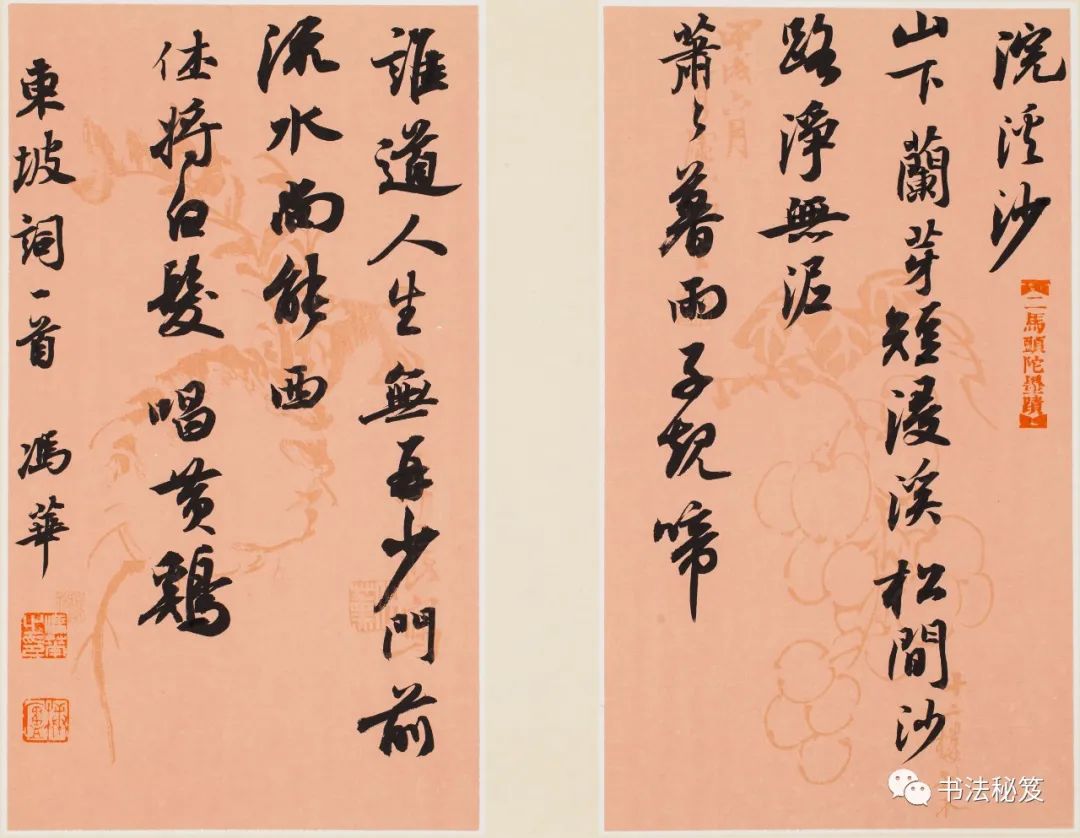 浣溪沙
二馬頭陀墨蹟
山下蘭芽短浸溪松間沙
路淨無泥
蕭〻暮雨子規啼
誰道人生無再少門前
流水尚能西
休將白髮唱黄鷄
東坡詞一首 馮華
书法秘笈